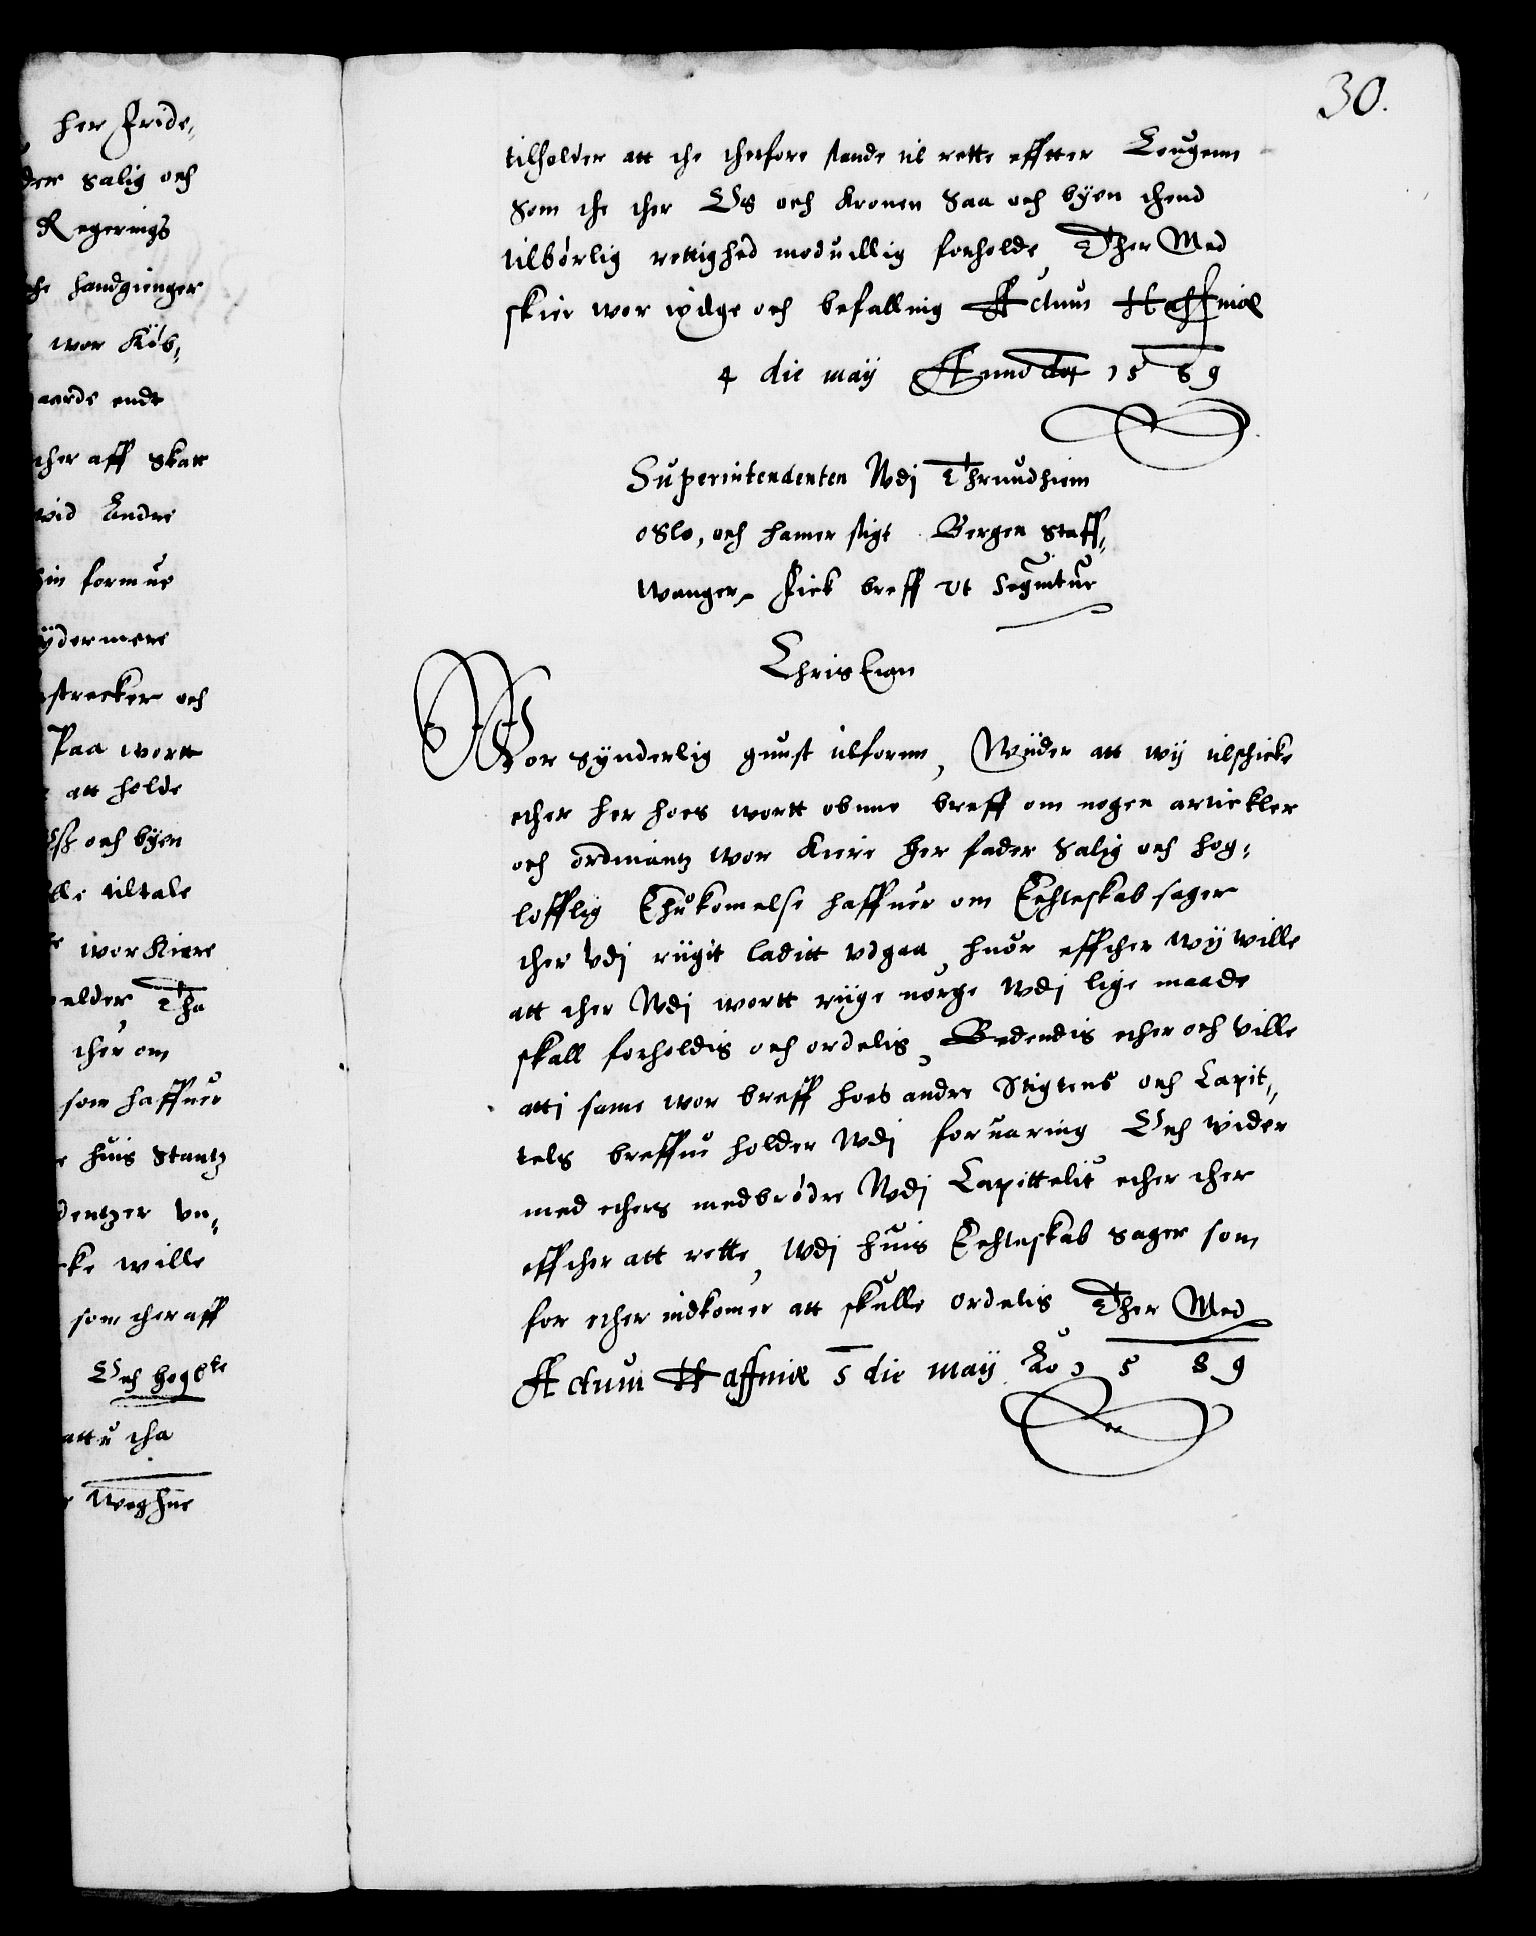 30.
her Fride,
der Salig och
Regerings
the handgienger
wor Kiöb,
aarde endt
ther aff Skatt
wid Andre
hin formue
ydermere
strecker och
Paa wortt
att holde
och byen
tiltale
wor Kiere
elder Tha
ther om
som haffuer
huis Stantz
dentzer vn,
cke wille
som ther aff
Och hogbte
attu tha
Weghne
tilholder att the therfore stande til rette effter Lougenn
Som the ther Os och Kronen Saa och byen thend
tilbörlig rettighed moduillig forholde Ther Med
skier wor willge och befalling Actum Haffniæ
4 die maij Anno do: 1589
Superintendenten Wdj Thrundhiem
Oslo, och Hamer stigt Bergen Staff,
wanger, Fick breff vt Seqvitur
Christian
Wor synderlig gunst tilfornn, Wider att wij tilschicke
ether her hoes wortt obnne breff om nogen artickler
och ordinantz wor Kiere Her fader Salig och hog,
lofflig Ihukomelse haffuer om Echteskab sager
ther vdj riigit laditt vdgaa, huor effther wij wille
att ther Wdj wortt riige norge Wdj lige maade
skall forholdis och ordelis, Bedendis ether och ville
atti same wor breff hoes andre Stigtens och Capit,
tels breffue holder Wdj foruaring Och wider
med ethers medbrödre Wdj Capittelit ether ther
effther att rette, Wdj huis Echteskab Sager som
for ether indkomer att skulle ordelis Ther Med
Actum Haffniæ 5 die maij Ao 1589